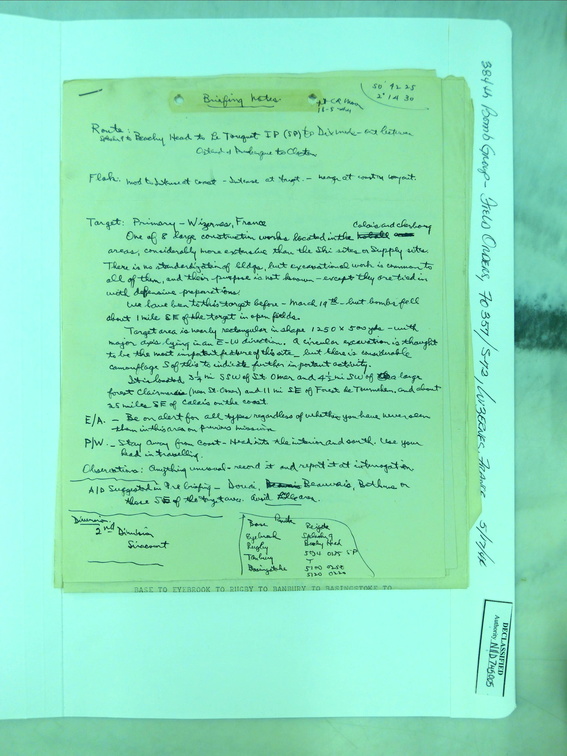 Briefing Notes
50 42 25
2 14 30
Route:
to Beachy Head to Le Touquet IP (50) to
to
Flak: mod to intense at coast - intense at target -
Target: Primary - Wizernes, France
Calais and Cherbourg
One of 8 large construction works located in the
areas, considerably more extensive than the Ski sites or Supply sites.
There is no standardization of bldgs, but excavational work is common to
all of them, and their purpose is not known - except they are tied in
with defensive preparations.
We have been to this target before - March 19th - but bombs fell
about 1 mile SE of the target in open fields.
Target area is nearly rectangular in shape 1250 x 500 yds - with
major axis lying in an E-W direction. A circular excavation is thought
to be the most important feature of this site - but there is considerable
camouflage S of this to indicate further important activity.
It is located 3 1/2 mi SSW of St Omer and 4 1/2 mi SW of a large
forest Clairmarais and 11 mi SE of Foret de Tournehem, and about
25 miles SE of Calais on the coast
E/A. - Be on alert for all types regardless of whether you have never seen
them in this area on previous mission
P/W. - Stay away from Coast - Head into the interior and south. Use your
head in travelling.
Observations: Anything unusual - record it and report it at interrogation
A/D Suggested in Pre briefing - Douai, Beauvais, or
those SE of the target area.
Diversion:
2nd Division
Siracourt
Route
Base
Eyebrook
Rugby
Banbury
Basingstoke
Reigate
Splasher 9
Beachy Head
5034 0125 IP
T
5100 0256
5120 0220
BASE TO EYEBROOK TO RUGBY TO BANBURY TO BASINGSTOKE TO
384th Bomb Group - Field Orders, FO 357/S-
DECLASSIFIED
Authority NND 745005